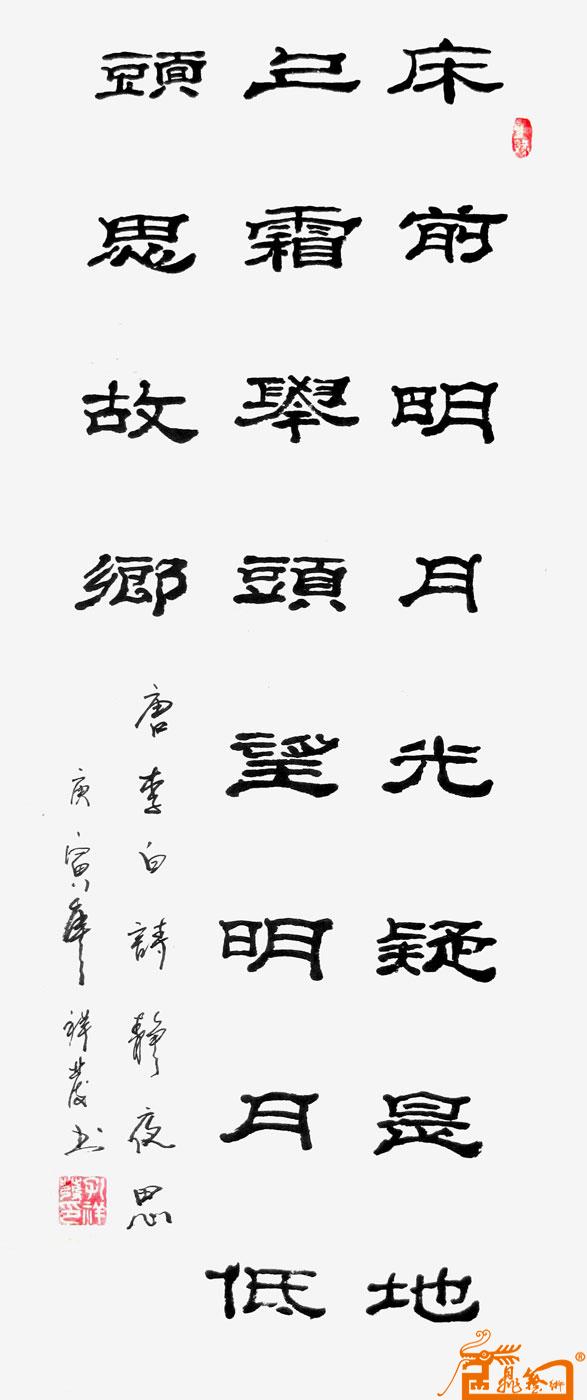 床前明月光疑是地
上霜舉頭望明月低
頭思故鄉
唐李白詩靜夜思
庚寅年祥發书